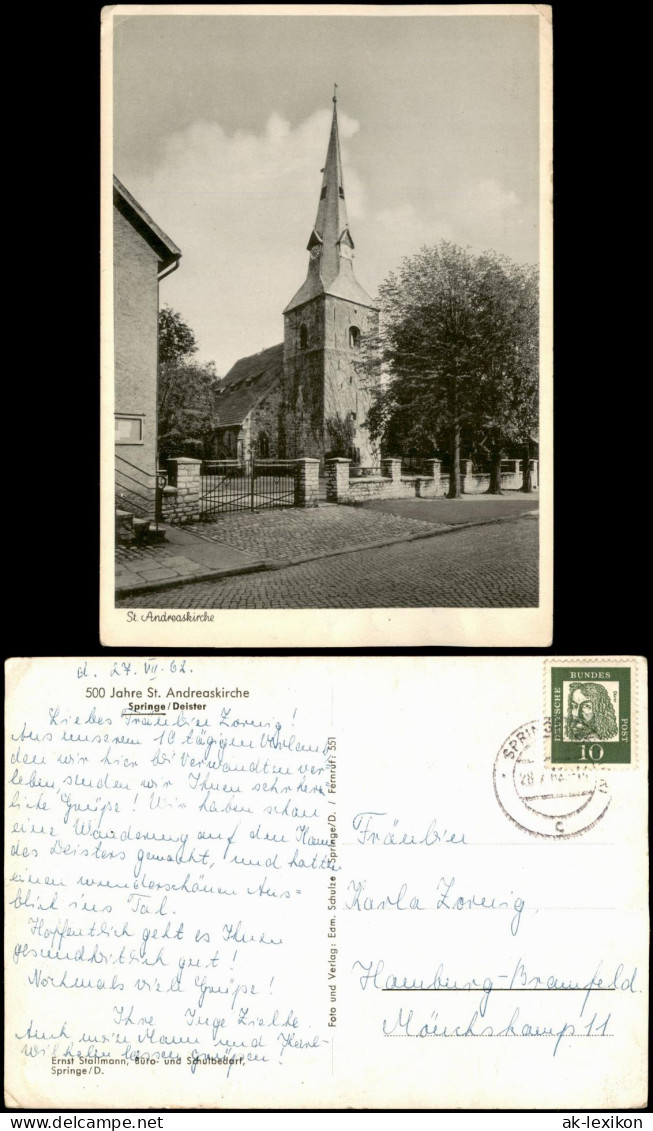 St. Andreaskirche
d. 27. VII. 62.
500 Jahre St. Andreaskirche
Springe/Deister
Liebes Fräulein Zornig!
Aus unserem 10 tägigen Urlaub,
den wir hier bei Verwandten ver
leben, senden wir Ihnen sehr herz
liche Grüße! Wir haben schon
eine Wanderung auf den Kamm
des Deisters gemacht, und hatten
einen wunderschönen Aus=
blick ins Tal.
Hoffentlich geht es Ihnen
gesundheitlich gut!
Nochmals viele Grüße!
Ihre Inge
Auch mein Mann und Karl-
wilhelm lassen grüßen!
Ernst Stallmann, Büro- und Schulbedarf,
Springe/D.
Foto und Verlag: Edm. Schulze, Springe/D. / Fernruf: 551
DEUTSCHE BUNDES POST
10
SPRINGE
28.7.62
c
Fräulein
Karla Zornig
Hamburg-Bramfeld
Mönchskamp 11
delcampe.net
ak-lexikon